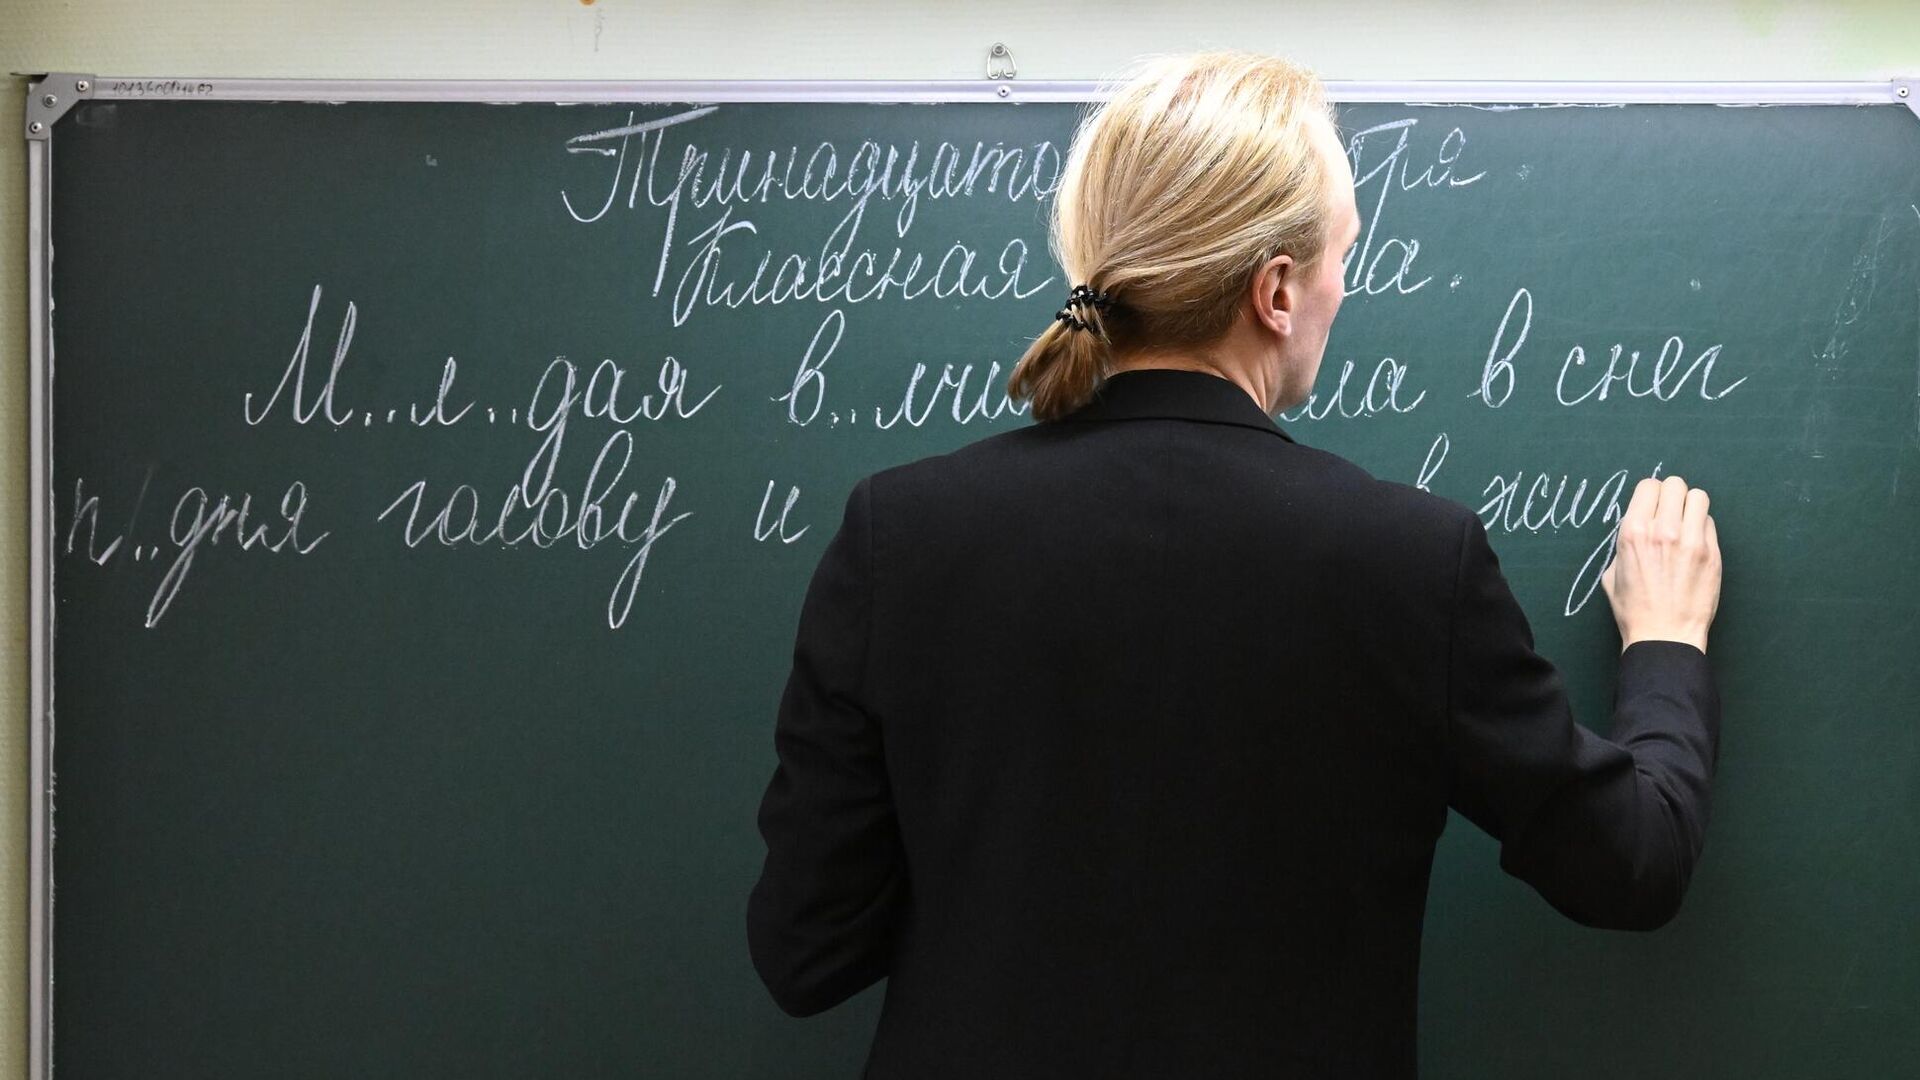 Тринадцато бря
Классная та.
М..л..дая в..лчи ла в снег
п..дня голову и в жиз